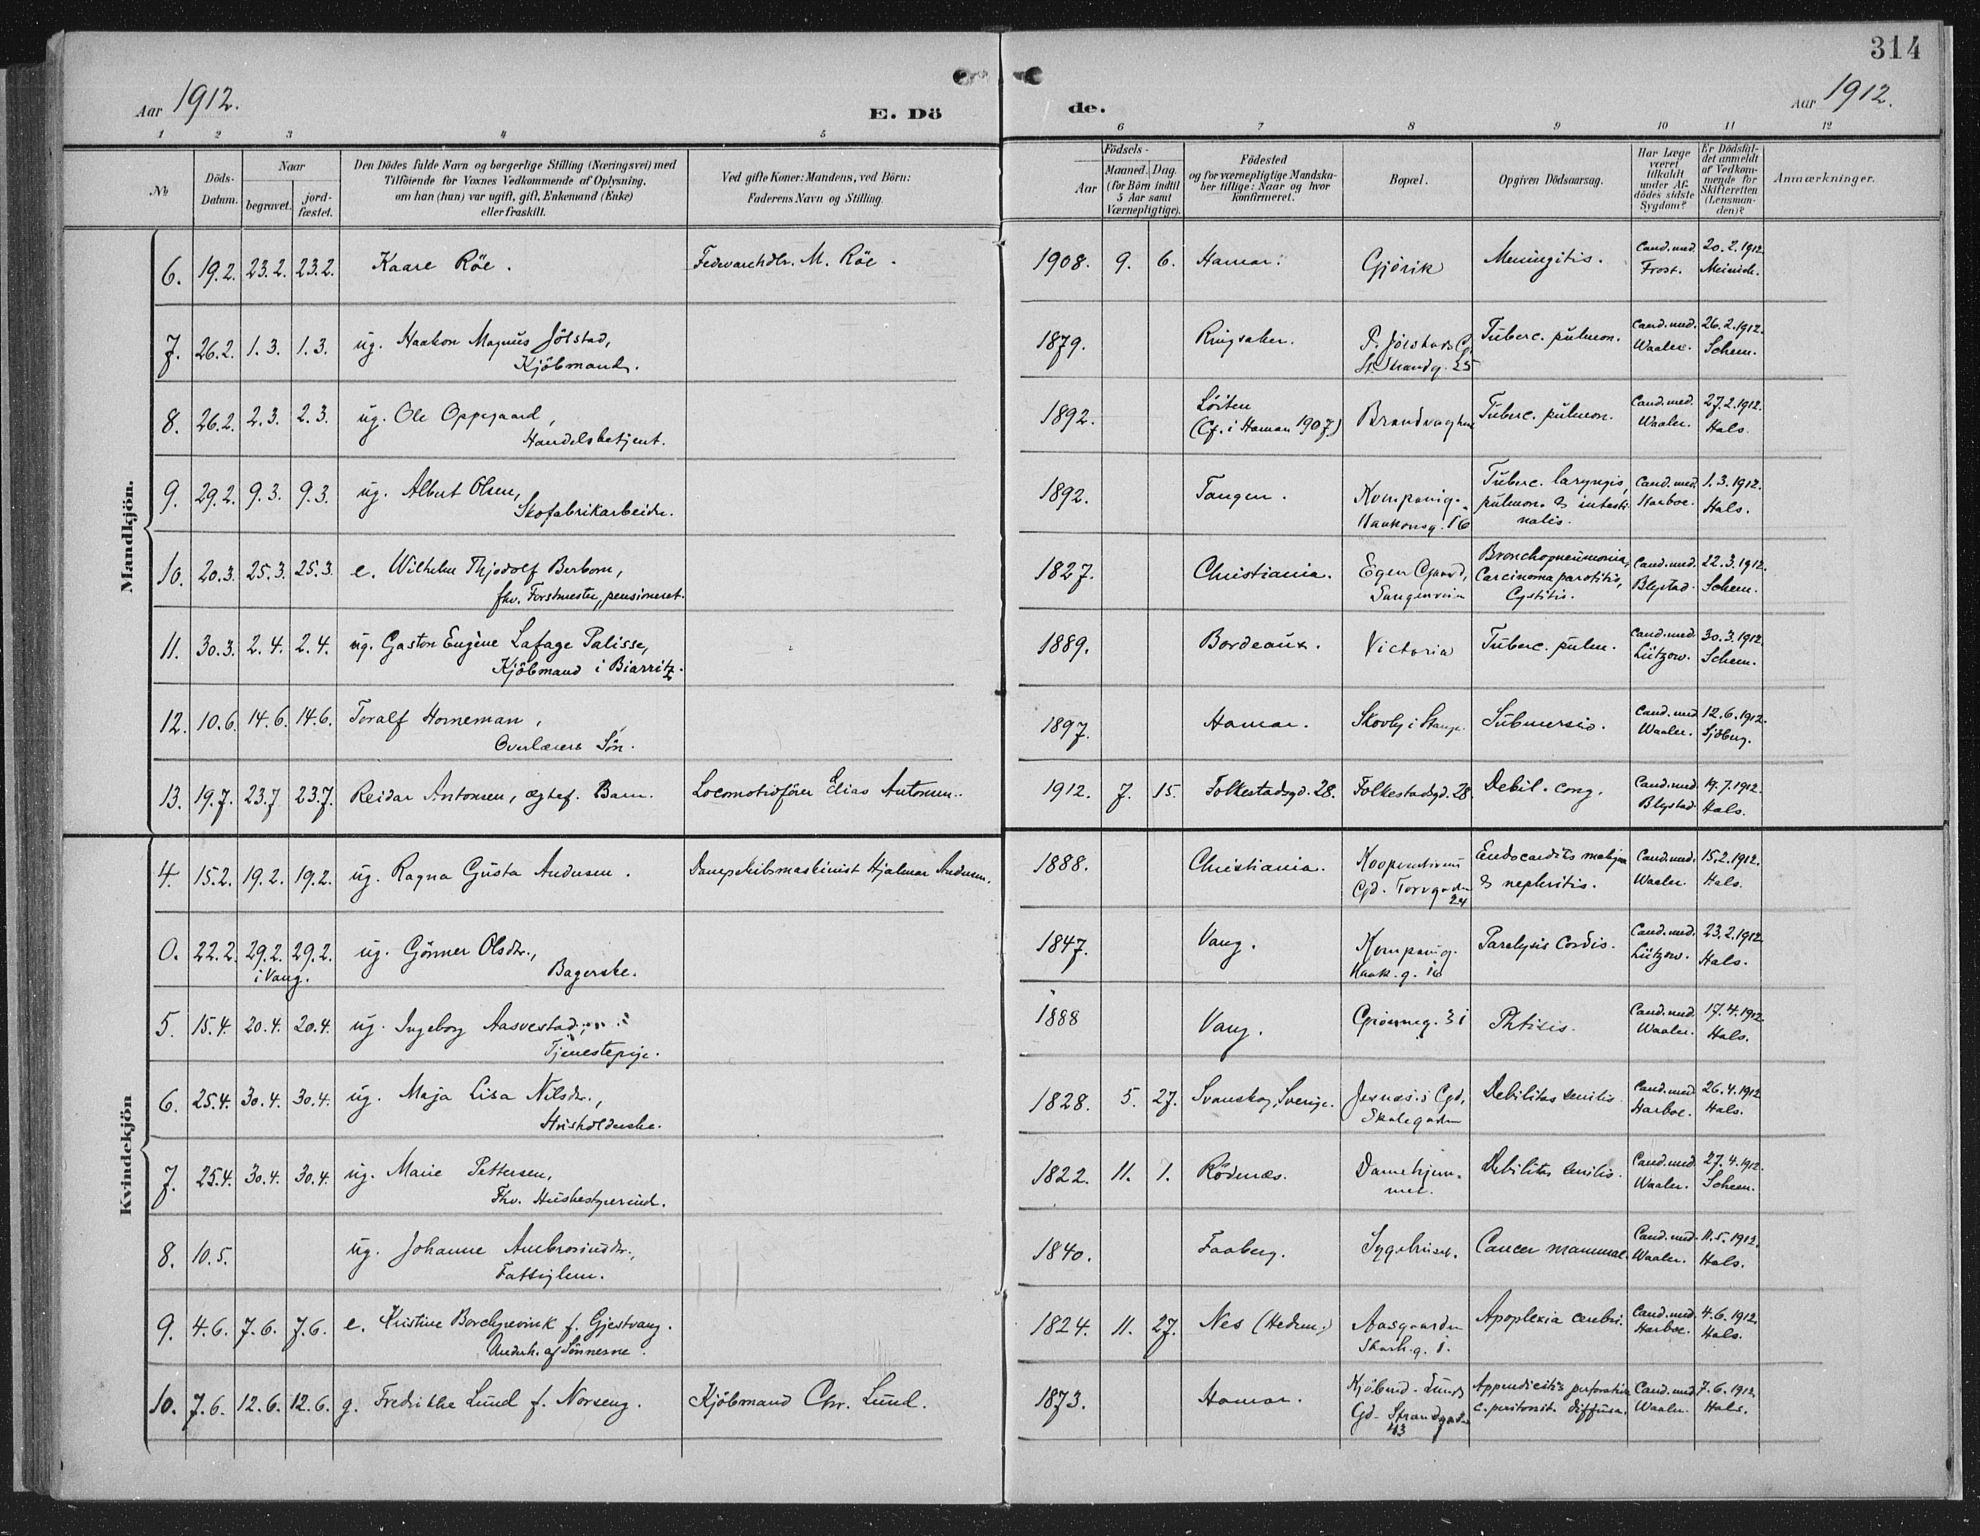 314
Aar 1912.
E. Dö
de.
Aar 1912.
1 2 3 4 5 6 7 8 9 10 11 12
No
Döds-
Datum.
Naar
begravet.
jord-
fæstet.
Den Dödes fulde Navn og borgerlige Stilling (Næringsvei) med
Tilföiende for Voxnes Vedkommende af Oplysning,
om han (hun) var ugift, gift, Enkemand (Enke)
eller fraskilt.
Ved gifte Koner: Mandens, ved Börn:
Faderens Navn og Stilling.
Födsels-
Aar
Maaned. Dag.
(for Börn indtil
5 Aar samt
Værnepligtige).
Födested
og for værnepligtige Mandska-
ber tillige: Naar og hvor
konfirmeret.
Bopæl.
Opgiven Dödsaarsag.
Har Læge
været
tilkaldt
under Af-
dödes sidste
Sygdom?
Er Dödsfal-
det anmeldt
af Vedkom-
mende for
Skifteretten
(Lensman-
den)?
Anmærkninger.
Mandkjön.
6. 19.2. 23.2. 23.2. Kaare Röe. M. Röe. 1908. 9. 6. Hamar. Gjövik Meningitis. Cand. med. 20.2.1912
Frost.
7. 26.2. 1.3. 1.3. ug. Haakon Magnus Jölstad, 1879. Ringsaker. P. Jölstads Tuberc. pulmon. Cand. med. 26.2.1912.
Kjöbmand. St. Strandg. 25 Waaler. Scheen.
8. 26.2. 2.3. 2.3. ug. Ole Oppegaard, 1892. Löiten Tuberc. pulmon. Cand. med. 27.2.1912.
Handelsbetjent. (Cf. i Hamar 1907.) Waaler. Hals.
9. 29.2. 9.3. 9.3. ug. Albert Olsen, 1892. Tangen. Tuberc. laryngis, Cand. med. 1.3.1912.
Skofabrikarbeider. Haakonsg. 16 pulmon. & intesti- Harboe. Hals.
nalis.
10. 20.3. 25.3. 25.3. e. Wilhelm Thjodolf Berbom, 1827. Christiania. Egen Gaard, Bronchopneumonia, Cand. med. 22.3.1912.
fhv. Forstmester, pensioneret. Tangenveien Carcinoma parotitis, Blystad. Scheen.
Cystitis.
11. 30.3. 2.4. 2.4. ug. Gaston Eugène Lafage Palisse, 1889. Bordeaux. Victoria Tuberc. pulm. Cand. med. 30.3.1912.
Kjöbmand i Biarritz. Lützow. Scheen.
12. 10.6. 14.6. 14.6. Toralf Horneman, 1897. Hamar. Skovly i Stange. Submersio. Cand. med. 12.6.1912.
Overlærers Sön. Waaler. Sjöberg.
13. 19.7. 23.7 23.7. Reidar Antonsen, ægtef. Barn. Locomotivförer Elias Antonsen. 1912. 7. 15. Folkestadsgd. 28. Folkestadsgd. 28. Debil. cong. Cand. med. 19.7.1912.
Blystad. Hals.
Kvindekjön
4. 15.2. 19.2. 19.2. ug. Ragna Gusta Andersen. Dampskibsmaskinist Hjalmar Andersen. 1888. Christiania. Kooperativens Endocarditis maligna Cand. med. 15.2.1912.
Gd. Torvgaden & nephritis. Waaler. Hals.
24
0. 22.2. 29.2. 29.2. ug. Gönner Olsdtr., 1847. Vang. Paralysis Cordis. Cand. med. 23.2.1912.
i Vang. Bagerske. Haak. g. 16 Lützow. Hals.
5. 15.4. 20.4. 20.4. ug. Ingeborg Aasvestad, 1888 Vang. Grönneg. 31 Phtisis. Cand. med. 17.4.1912.
Tjenestepige. Waaler. Hals.
6. 25.4. 30.4. 30.4. ug. Maja Lisa Nilsdtr., 1828. 5. 27. Svanskog, Sverige. Jernæs's Gd, Debilitas senilis. Cand. med. 26.4.1912
Husholderske. Skolegaden Harboe. Hals.
7. 25.4. 30.4. 30.4. ug. Marie Pettersen, 1822. 11. 1. Rödenæs. Damehjem- Debilitas senilis. Cand. med. 27.4.1912.
Fhv. Husbestyrerinde. met. Waaler. Scheen.
8. 10.5. ug. Johanne Ambrosiusdtr., 1840. Faaberg. Sygehuset. Cancer mammae. Cand. med. 11.5.1912.
Fattiglem. Waaler. Hals.
9. 4.6. 7.6. 7.6. e. Kristine Borchgrevink f. Gjestvang. 1824. 11. 27. Nes (Hedem.) Aasgaarden Apoplexia cerebri. Cand. med. 4.6.1912.
Underh. af Sönnerne. Skarh. g. 1. Harboe. Hals.
10. 7.6. 12.6. 12.6. g. Fredrikke Lund f. Norseng. Kjöbmand Chr. Lund. 1873. Hamar. Kjöbmd. Lunds Appendicitis perforativa Cand. med. 7.6.1912.
Gd. Strandgaden c. peritonit. diffusa. Waaler. Hals.
43